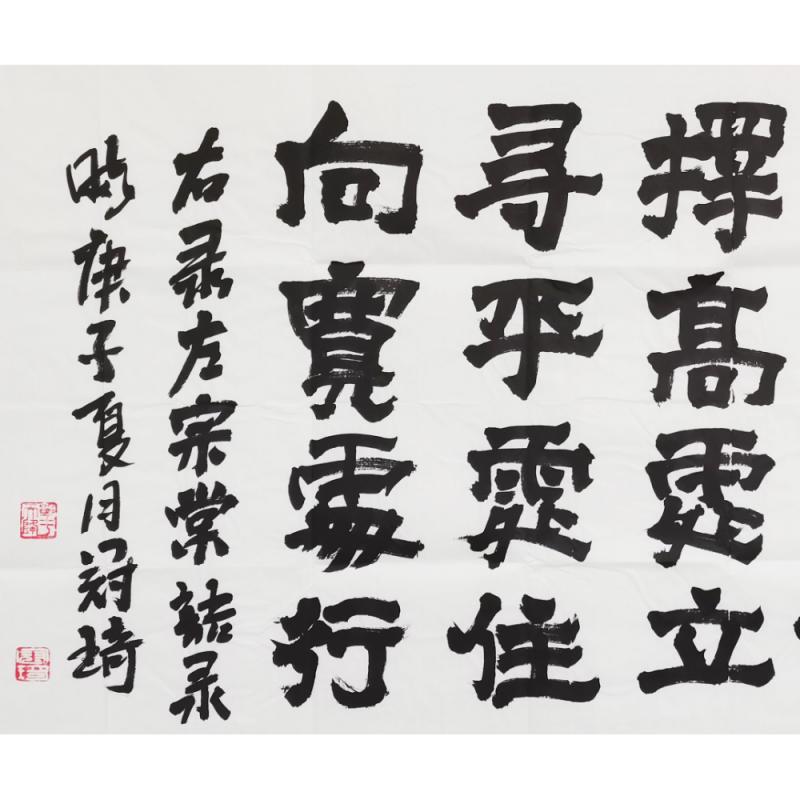 擇髙處立
寻平處住
向寬處行
右录左宗棠語录
時庚子夏月冠琦